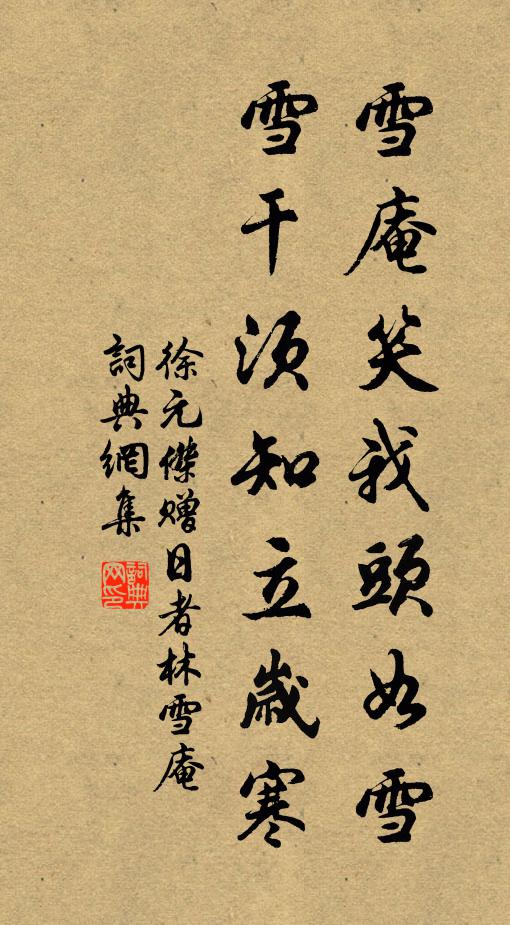 雪庵笑我頭如雪
雪干須知立歲寒
徐元傑贈日者林雪庵
詞典網集
詞典
网印